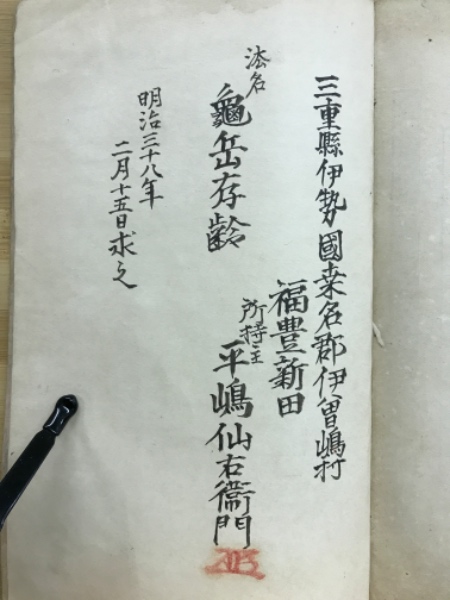 三重縣伊勢國桑名郡伊曾嶋村
福豊新田
所持主
平嶋仙右衞門
法名
龜岳存齢
明治三十八年
二月十五日求之